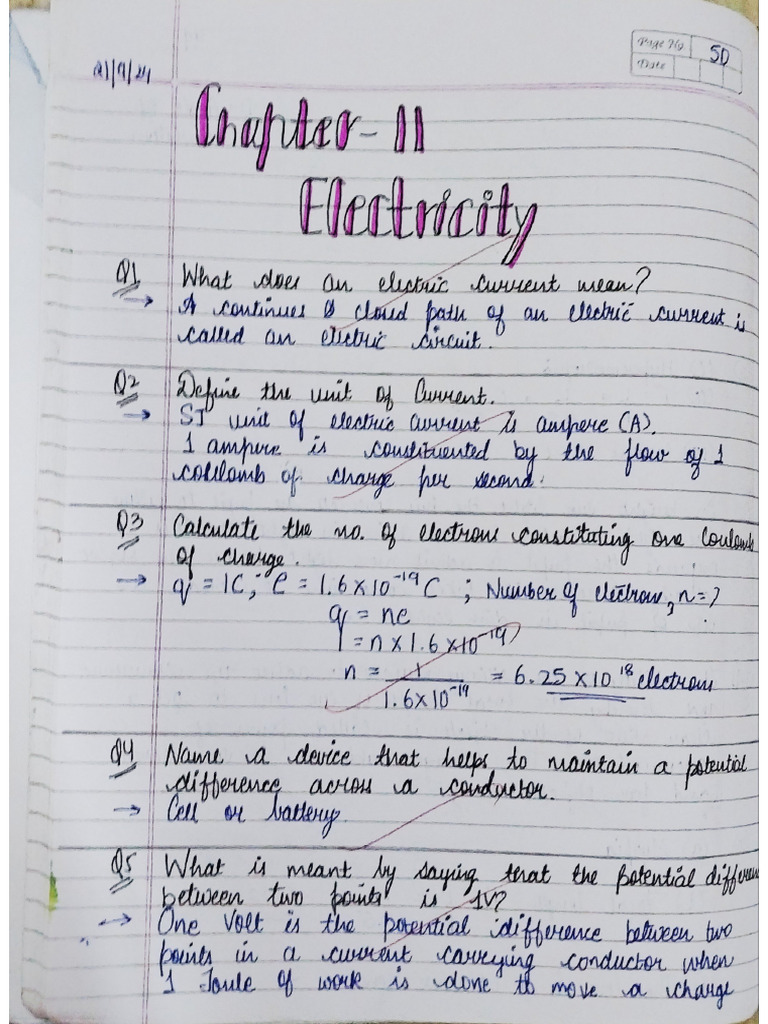 Page No. 50
Date
21/9/24
Chapter-11
Electricity
Q1 What does an electric current mean?
→ A continues & closed path of an electric current is
called an electric circuit.
Q2 Define the unit of Current.
→ SI unit of electric current is ampere (A).
1 ampere is constituented by the flow of 1
coulomb of charge per second.
Q3 Calculate the no. of electrons constituting one Coulomb
of charge.
→ q = 1C; e = 1.6×10⁻¹⁹ C ; Number of electrons, n=?
q = ne
1 = n × 1.6×10⁻¹⁹
n = 1/1.6×10⁻¹⁹ = 6.25 × 10¹⁸ electrons
Q4 Name a device that helps to maintain a potential
difference across a conductor.
→ Cell or battery.
Q5 What is meant by saying that the potential differen
between two points is 1V?
→ One Volt is the potential difference between two
points in a current carrying conductor when
1 Joule of work is done to move a charge